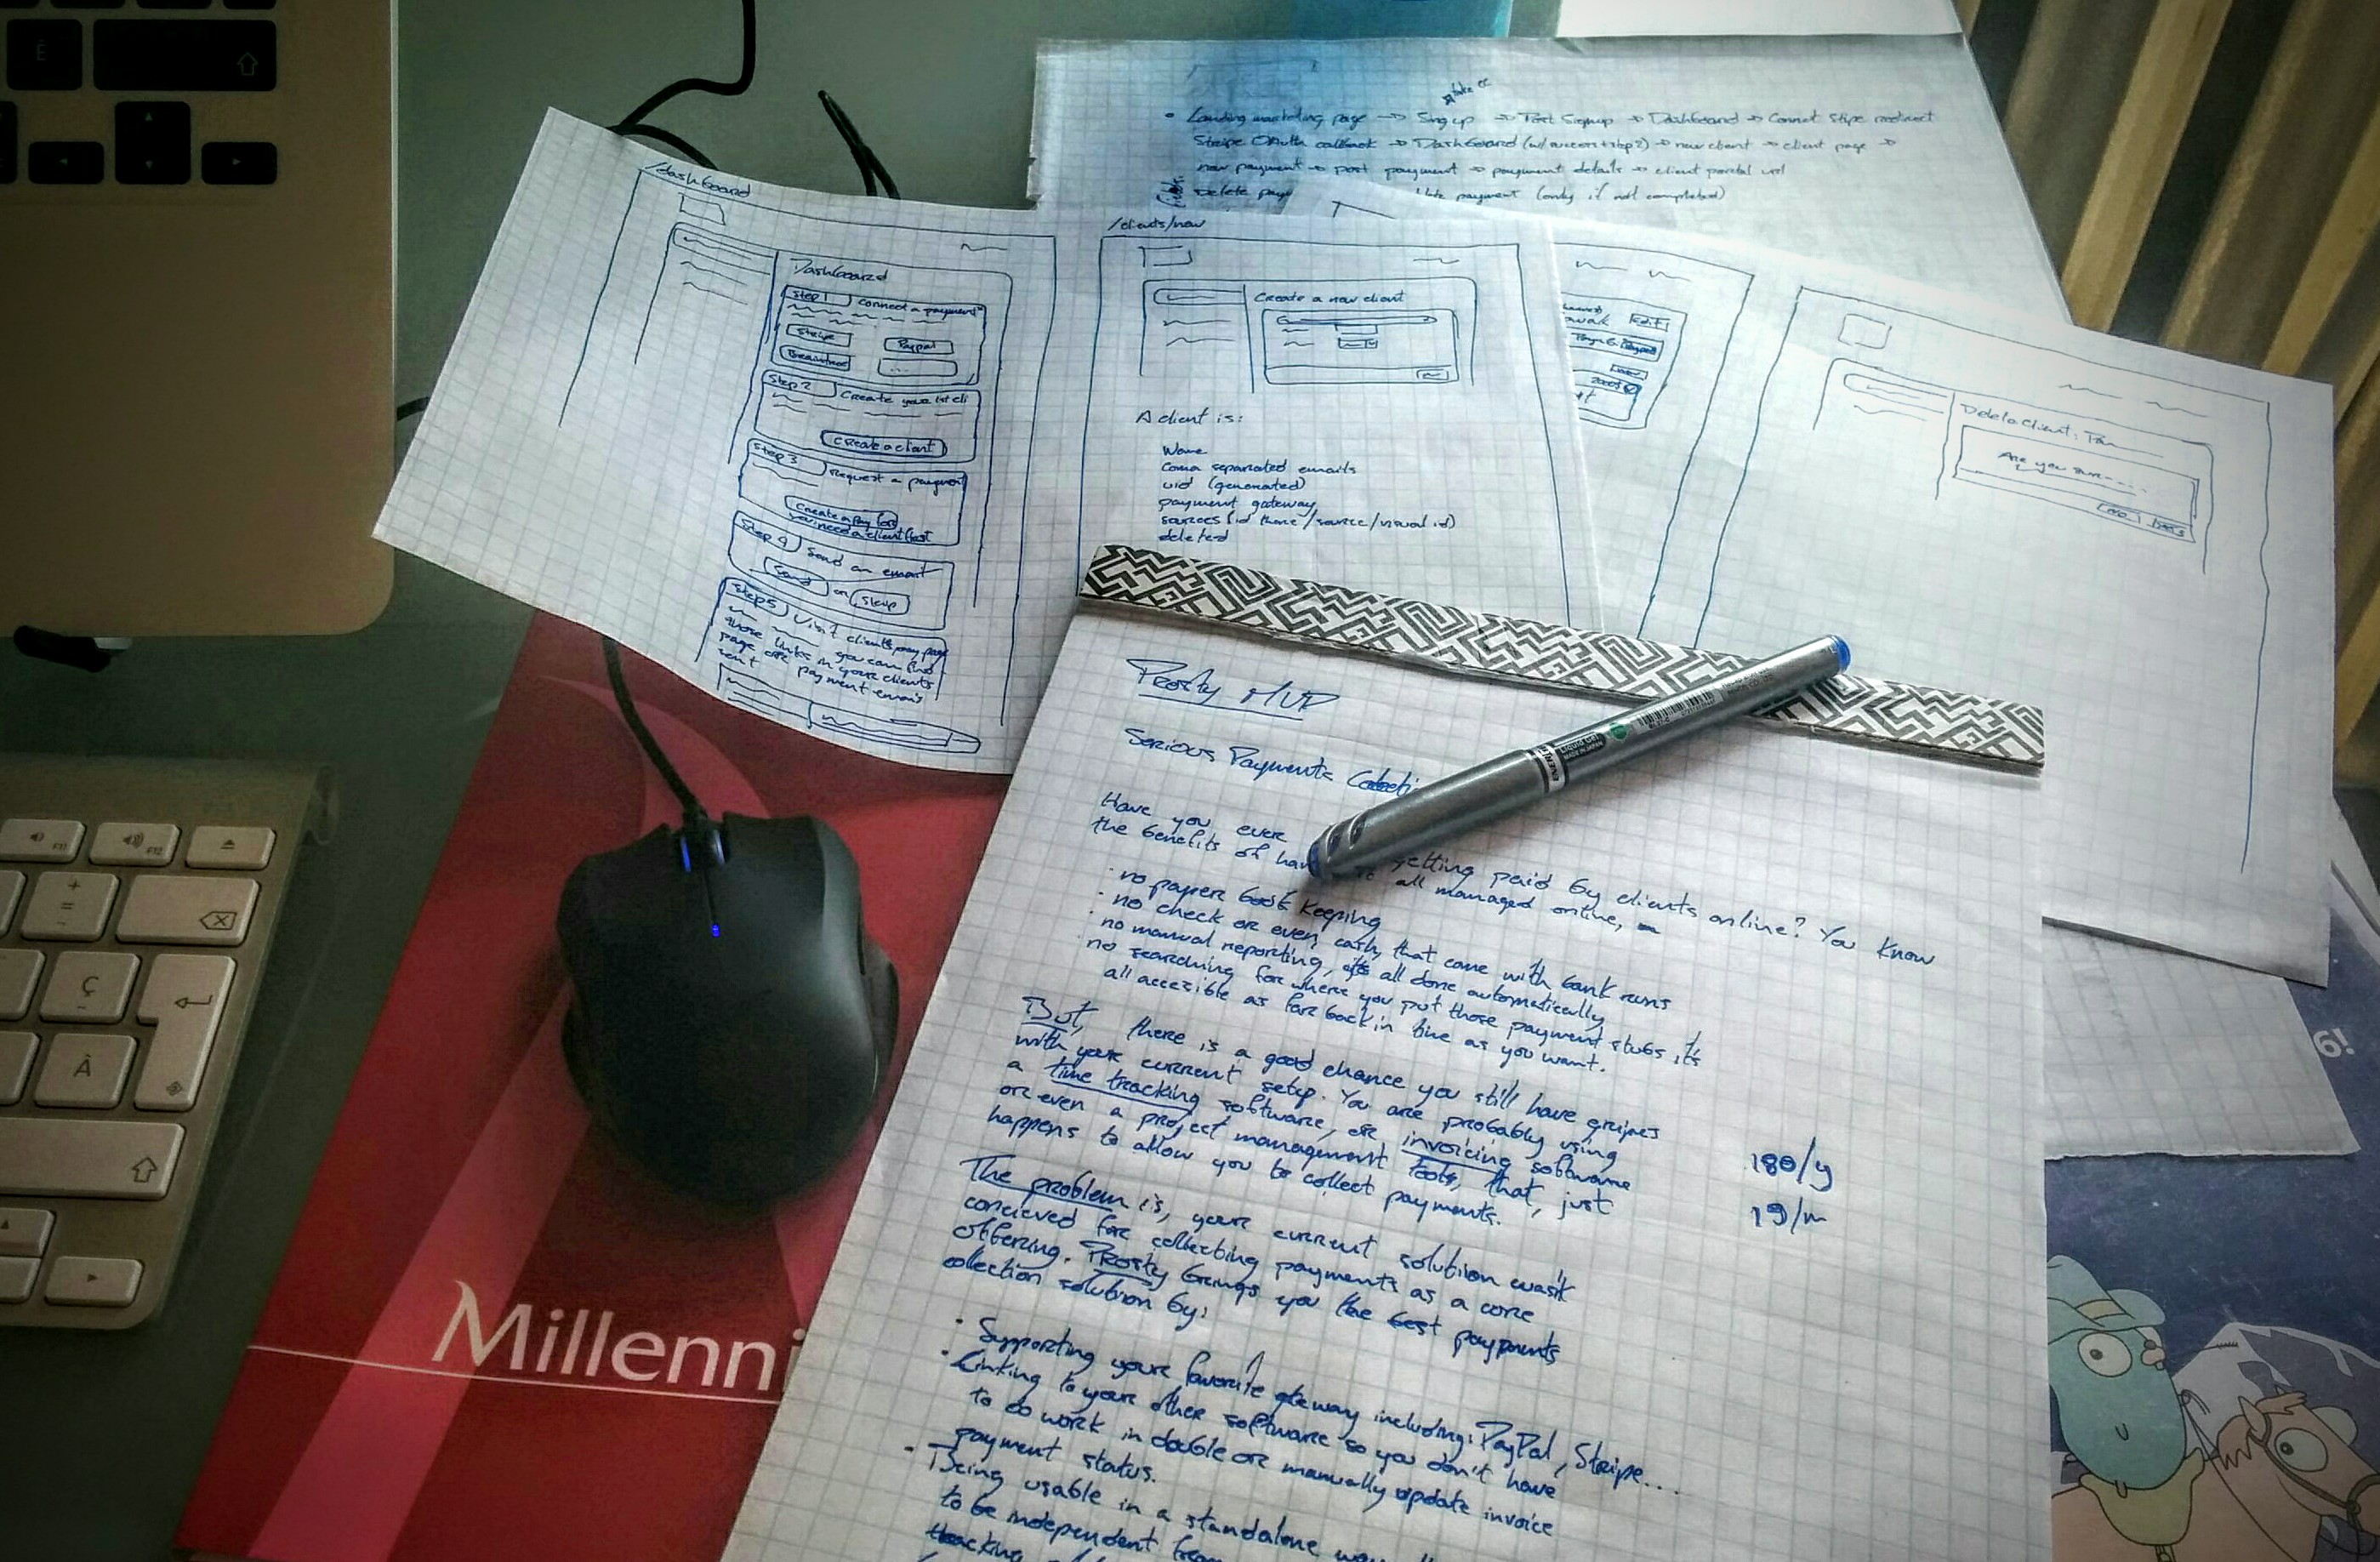 take cc
• Landing marketing page → Sing up → Post Signup → Dashboard → Connect Stripe redirect
Stripe OAuth callback → Dashboard (w/ access+step2) → new client → client page →
new payment → post payment → payment details → client portal url
Delete payment (only if not completed)
/dashboard
Dashboard
Step 1 Connect a payment
Stripe Paypal
Braintree ...
Step 2 Create your 1st cli
Create a client
Step 3 Request a payment
Create a Pay
you need a client first
Step 4 Send an email
Send or Skip
Step 5 Visit clients pay page
you can find
those links in your clients
page or payment emails
sent
/clients/new
Create a new client
A client is:
Name
Coma separated emails
uid (generated)
payment gateway
sources (id there/source/visual id)
deleted
Edit
Delete Client:
Are you sure----
Prosty MVP
Serious Payments
Have you ever getting paid by clients online? You know
the benefits of all managed online,
· no paper book keeping
· no check or even cash, that come with bank runs
· no manual reporting, it's all done automatically
· no searching for where you put those payment stubs, it's
all accesible as far back in time as you want.
But, there is a good chance you still have gripes
with your current setup. You are probably using
a time tracking software, or invoicing software
or even a project management tools, that, just
happens to allow you to collect payments.
180/y
19/m
The problem is, your current solution wasn't
concieved for collecting payments as a core
offering. Prosty brings you the best payments
colection solution by:
· Supporting your favorite gateway including: PayPal, Stripe....
· Linking to your other software so you don't have
to do work in double or manually update invoice
payment status.
· Being usable in a standalone way
to be independent from
tracking
Millenni
6!
ENER
Liquid Gel
MADE IN JAPAN
É
F11
F12
+
=
-
Ç
À